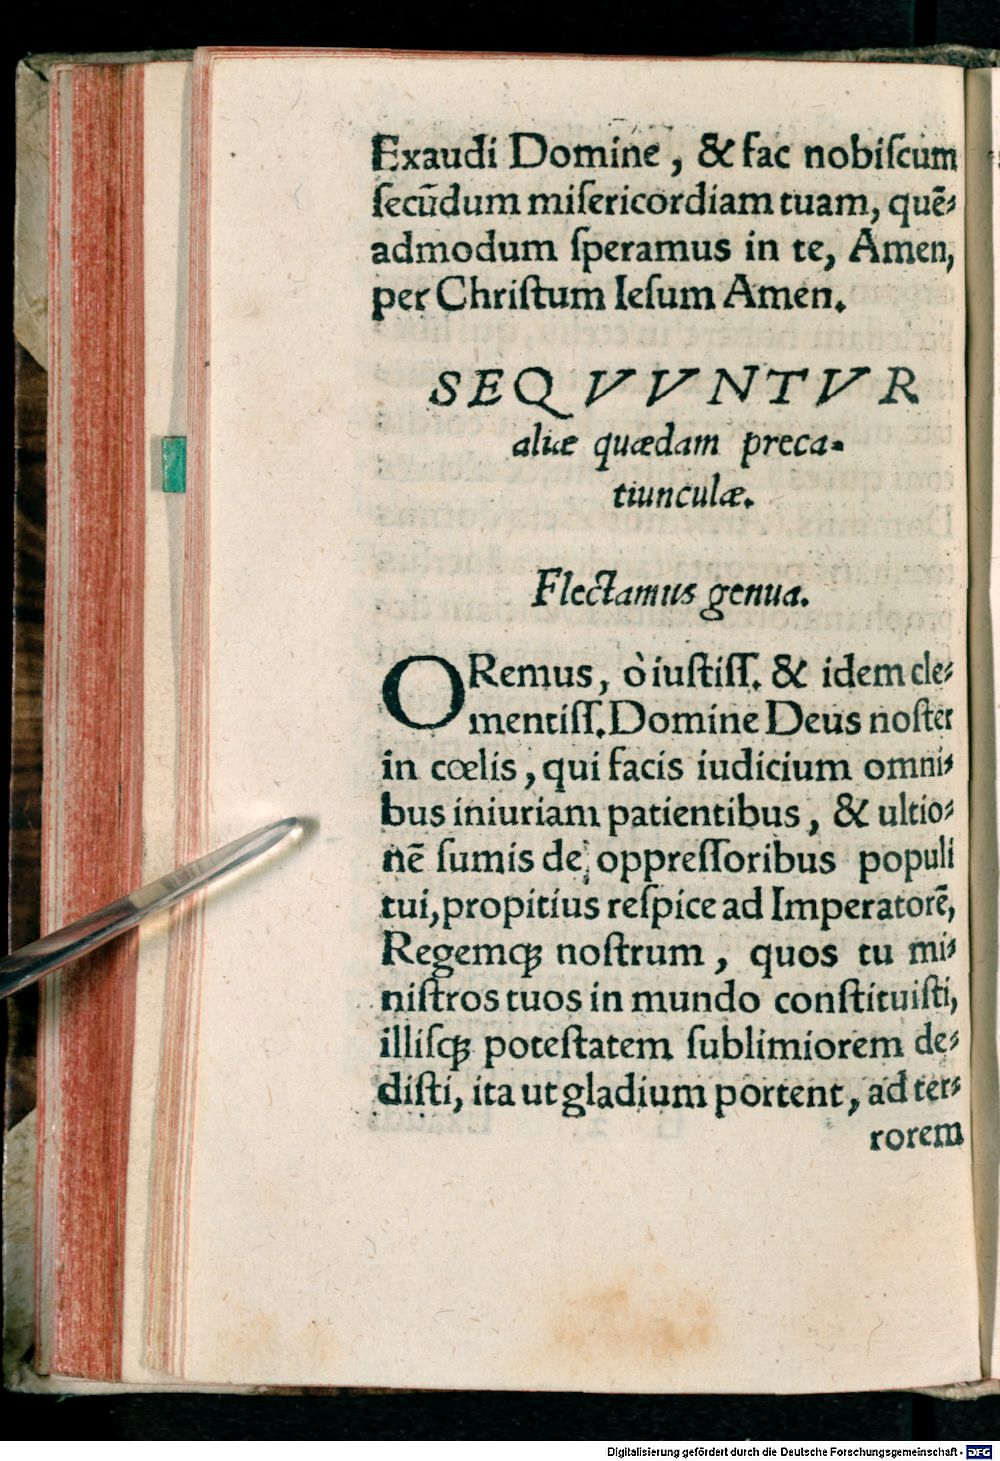 Exaudi Domine, & fac nobiſcum
ſecūdum miſericordiam tuam, quē⸗
admodum ſperamus in te, Amen,
per Chriſtum Ieſum Amen.
SEQVVNTVR
aliæ quædam preca⸗
tiunculæ.
Flectamus genua.
ORemus, ò iuſtiſſ. & idem cle⸗
mentiſſ. Domine Deus noſter
in cœlis, qui facis iudicium omni⸗
bus iniuriam patientibus, & ultio⸗
nē ſumis de oppreſſoribus populi
tui, propitius reſpice ad Imperatorē,
Regemq́ꝫ noſtrum, quos tu mi⸗
niſtros tuos in mundo conſtituiſti,
illiſq́ꝫ poteſtatem ſublimiorem de⸗
diſti, ita ut gladium portent, ad ter⸗
rorem
Digitalisierung gefördert durch die Deutsche Forschungsgemeinschaft - DFG